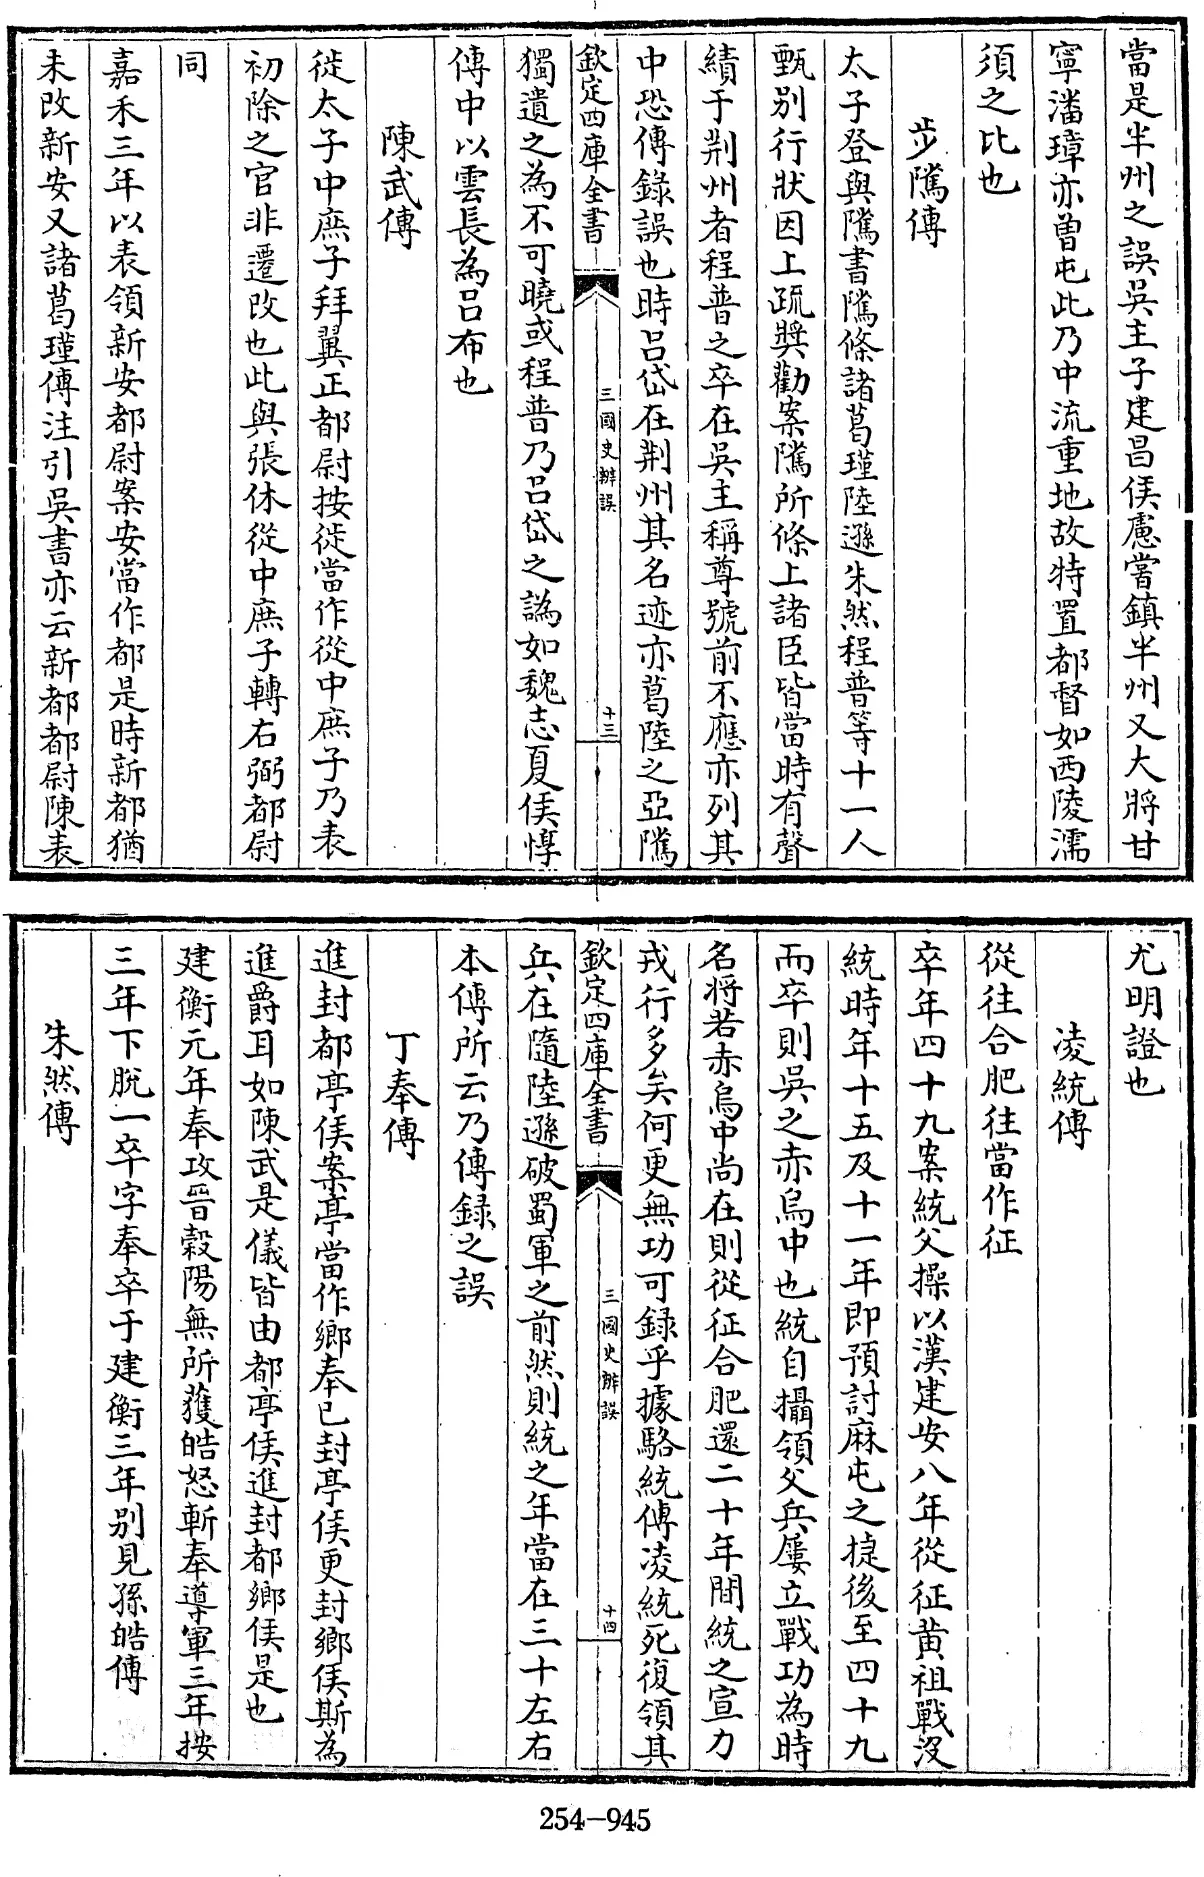 當是半州之誤吳主子建昌侯慮嘗鎮半州又大將甘
寧潘璋亦曾屯此乃中流重地故特置都督如西陵濡
須之比也
步隲傳
太子登與隲書隲條諸葛瑾陸遜朱然程普等十一人
甄別行狀因上疏奬勸案隲所條上諸臣皆當時有聲
績于荆州者程普之卒在吳主稱尊號前不應亦列其
中恐傳錄誤也時呂岱在荆州其名迹亦葛陸之亞隲
欽定四庫全書
三國史辨誤
十三
獨遺之為不可曉或程普乃呂岱之譌如魏志夏侯惇
傳中以雲長為呂布也
陳武傳
徙太子中庶子拜翼正都尉按徙當作從中庶子乃表
初除之官非遷改也此與張休從中庶子轉右弼都尉
同
嘉禾三年以表領新安都尉案安當作都是時新都猶
未改新安又諸葛瑾傳注引吳書亦云新都都尉陳表
尤明證也
凌統傳
從往合肥往當作征
卒年四十九案統父操以漢建安八年從征黃祖戰沒
統時年十五及十一年即預討麻屯之捷後至四十九
而卒則吳之赤烏中也統自攝領父兵屢立戰功為時
名將若赤烏中尚在則從征合肥還二十年間統之宣力
戎行多矣何更無功可錄乎據駱統傳凌統死復領其
欽定四庫全書
三國史辨誤
十四
兵在隨陸遜破蜀軍之前然則統之年當在三十左右
本傳所云乃傳錄之誤
丁奉傳
進封都亭侯案亭當作鄉奉已封亭侯更封鄉侯斯為
進爵耳如陳武是儀皆由都亭侯進封都鄉侯是也
建衡元年奉攻晉穀陽無所獲皓怒斬奉導軍三年按
三年下脫一卒字奉卒于建衡三年別見孫皓傳
朱然傳
254-945